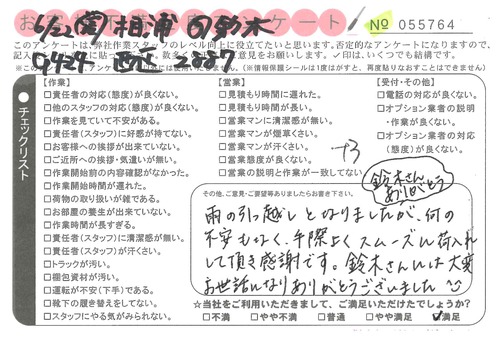 № 055764
このアンケートは、弊社作業スタッフのレベル向上に役立てたいと思います。否定的なアンケートになりますので、
(※情報保護シールは1度がすと、再度貼りなおすことはできません)
チェックリスト
【作業】
□責任者の対応(態度)が良くない。
□他のスタッフの対応(態度)が良くない。
□作業を見ていて不安がある。
□責任者(スタッフ)に好感が持てない。
□お客様への挨拶が出来ていない。
□ご近所への挨拶・気遣いが無い。
□作業開始前の内容確認がなかった。
□作業開始時間が遅れた。
□荷物の取り扱いが雑である。
□お部屋の養生が出来ていない。
□作業時間が長すぎる。
□責任者(スタッフ)に清潔感が無い。
□責任者(スタッフ)が汗くさい。
□トラックが汚い。
□梱包資材が汚い。
□運転が不安(下手)である。
□靴下の履き替えをしてない。
□スタッフにやる気がみられない。
【営業】
□見積もり時間に遅れた。
□見積もり時間が長い。
□営業マンに清潔感が無い。
□営業マンが煙草くさい。
□営業マンが汗くさい。
□営業態度が良くない。
□営業の説明と作業が一致してない
【受付・その他】
□電話の対応が良くない。
□オプション業者の説明
・作業が良くない。
□オプション業者の対応
(態度)が良くない。
鈴木さん
ありがとう
その他、ご意見・ご要望等ありましたらお書き下さい。
雨の引っ越しとなりましたが、何の
不安もなく、手際よくスムーズに荷入れ
して頂き感謝です。鈴木さんには大変
お世話になりありがとうございました
☆当社をご利用いただきまして、ご満足いただけたでしょうか?
□不満 □やや不満 □普通 □やや満足 ☑満足